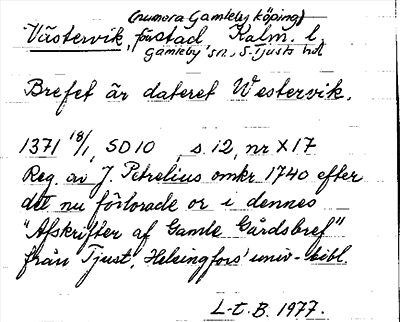 (numera Gamleby köping)
Västervik, förstad Kalm. l.
Gamleby sn, S. Tjusts hd
Brefet är dateret Westervik.
1371 18/1, SD 10, s. 12, nr X 17
Reg. av J. Petrelius omkr. 1740 efter
det nu förlorade or i dennes
"Afskrifter af Gamle Gårdsbref"
från Tjust, Helsingfors' univ-bibl.
L-t. B. 1977.